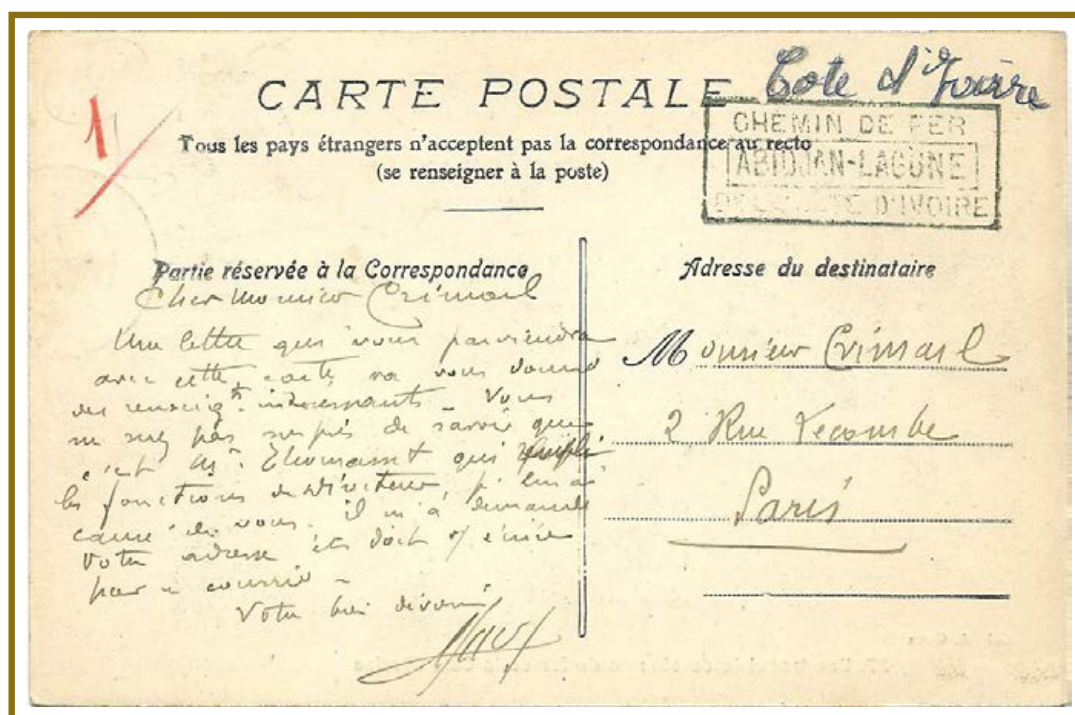 Cote d'Ivoire
1
CARTE POSTALE
CHEMIN DE FER
ABIDJAN-LAGUNE
DE LA COTE D'IVOIRE
Tous les pays étrangers n'acceptent pas la correspondance au recto
(se renseigner à la poste)
Partie réservée à la Correspondance
Cher Monsieur Crimail
Une lettre que vous parviendra
avec cette carte va vous donner
des renseigts. intéressants. Vous
ne serez pas surpris de savoir que
c'est Mr. qui remplit
les fonctions de Directeur, je lui ai
causé de vous. il m'a demandé
votre adresse et doit
par ce courrier -
Votre bien dévoué
Adresse du destinataire
Monsieur Crimail
2 Rue Lecombe
Paris